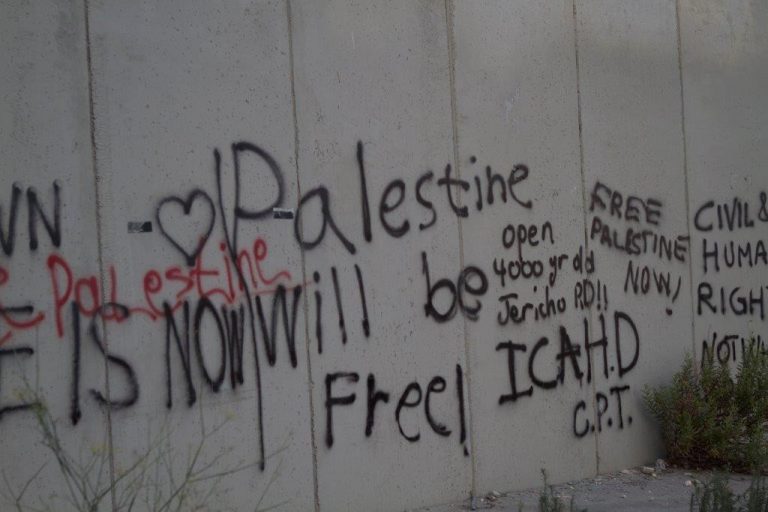 WN
♥ Palestine
Palestine
E IS NOW
Will be
Free!
open
4000 yr old
Jericho RD!!
ICAHD
C.P.T.
FREE
PALSTINE
NOW!
CIVIL &
HUMA
RIGHT
NOT